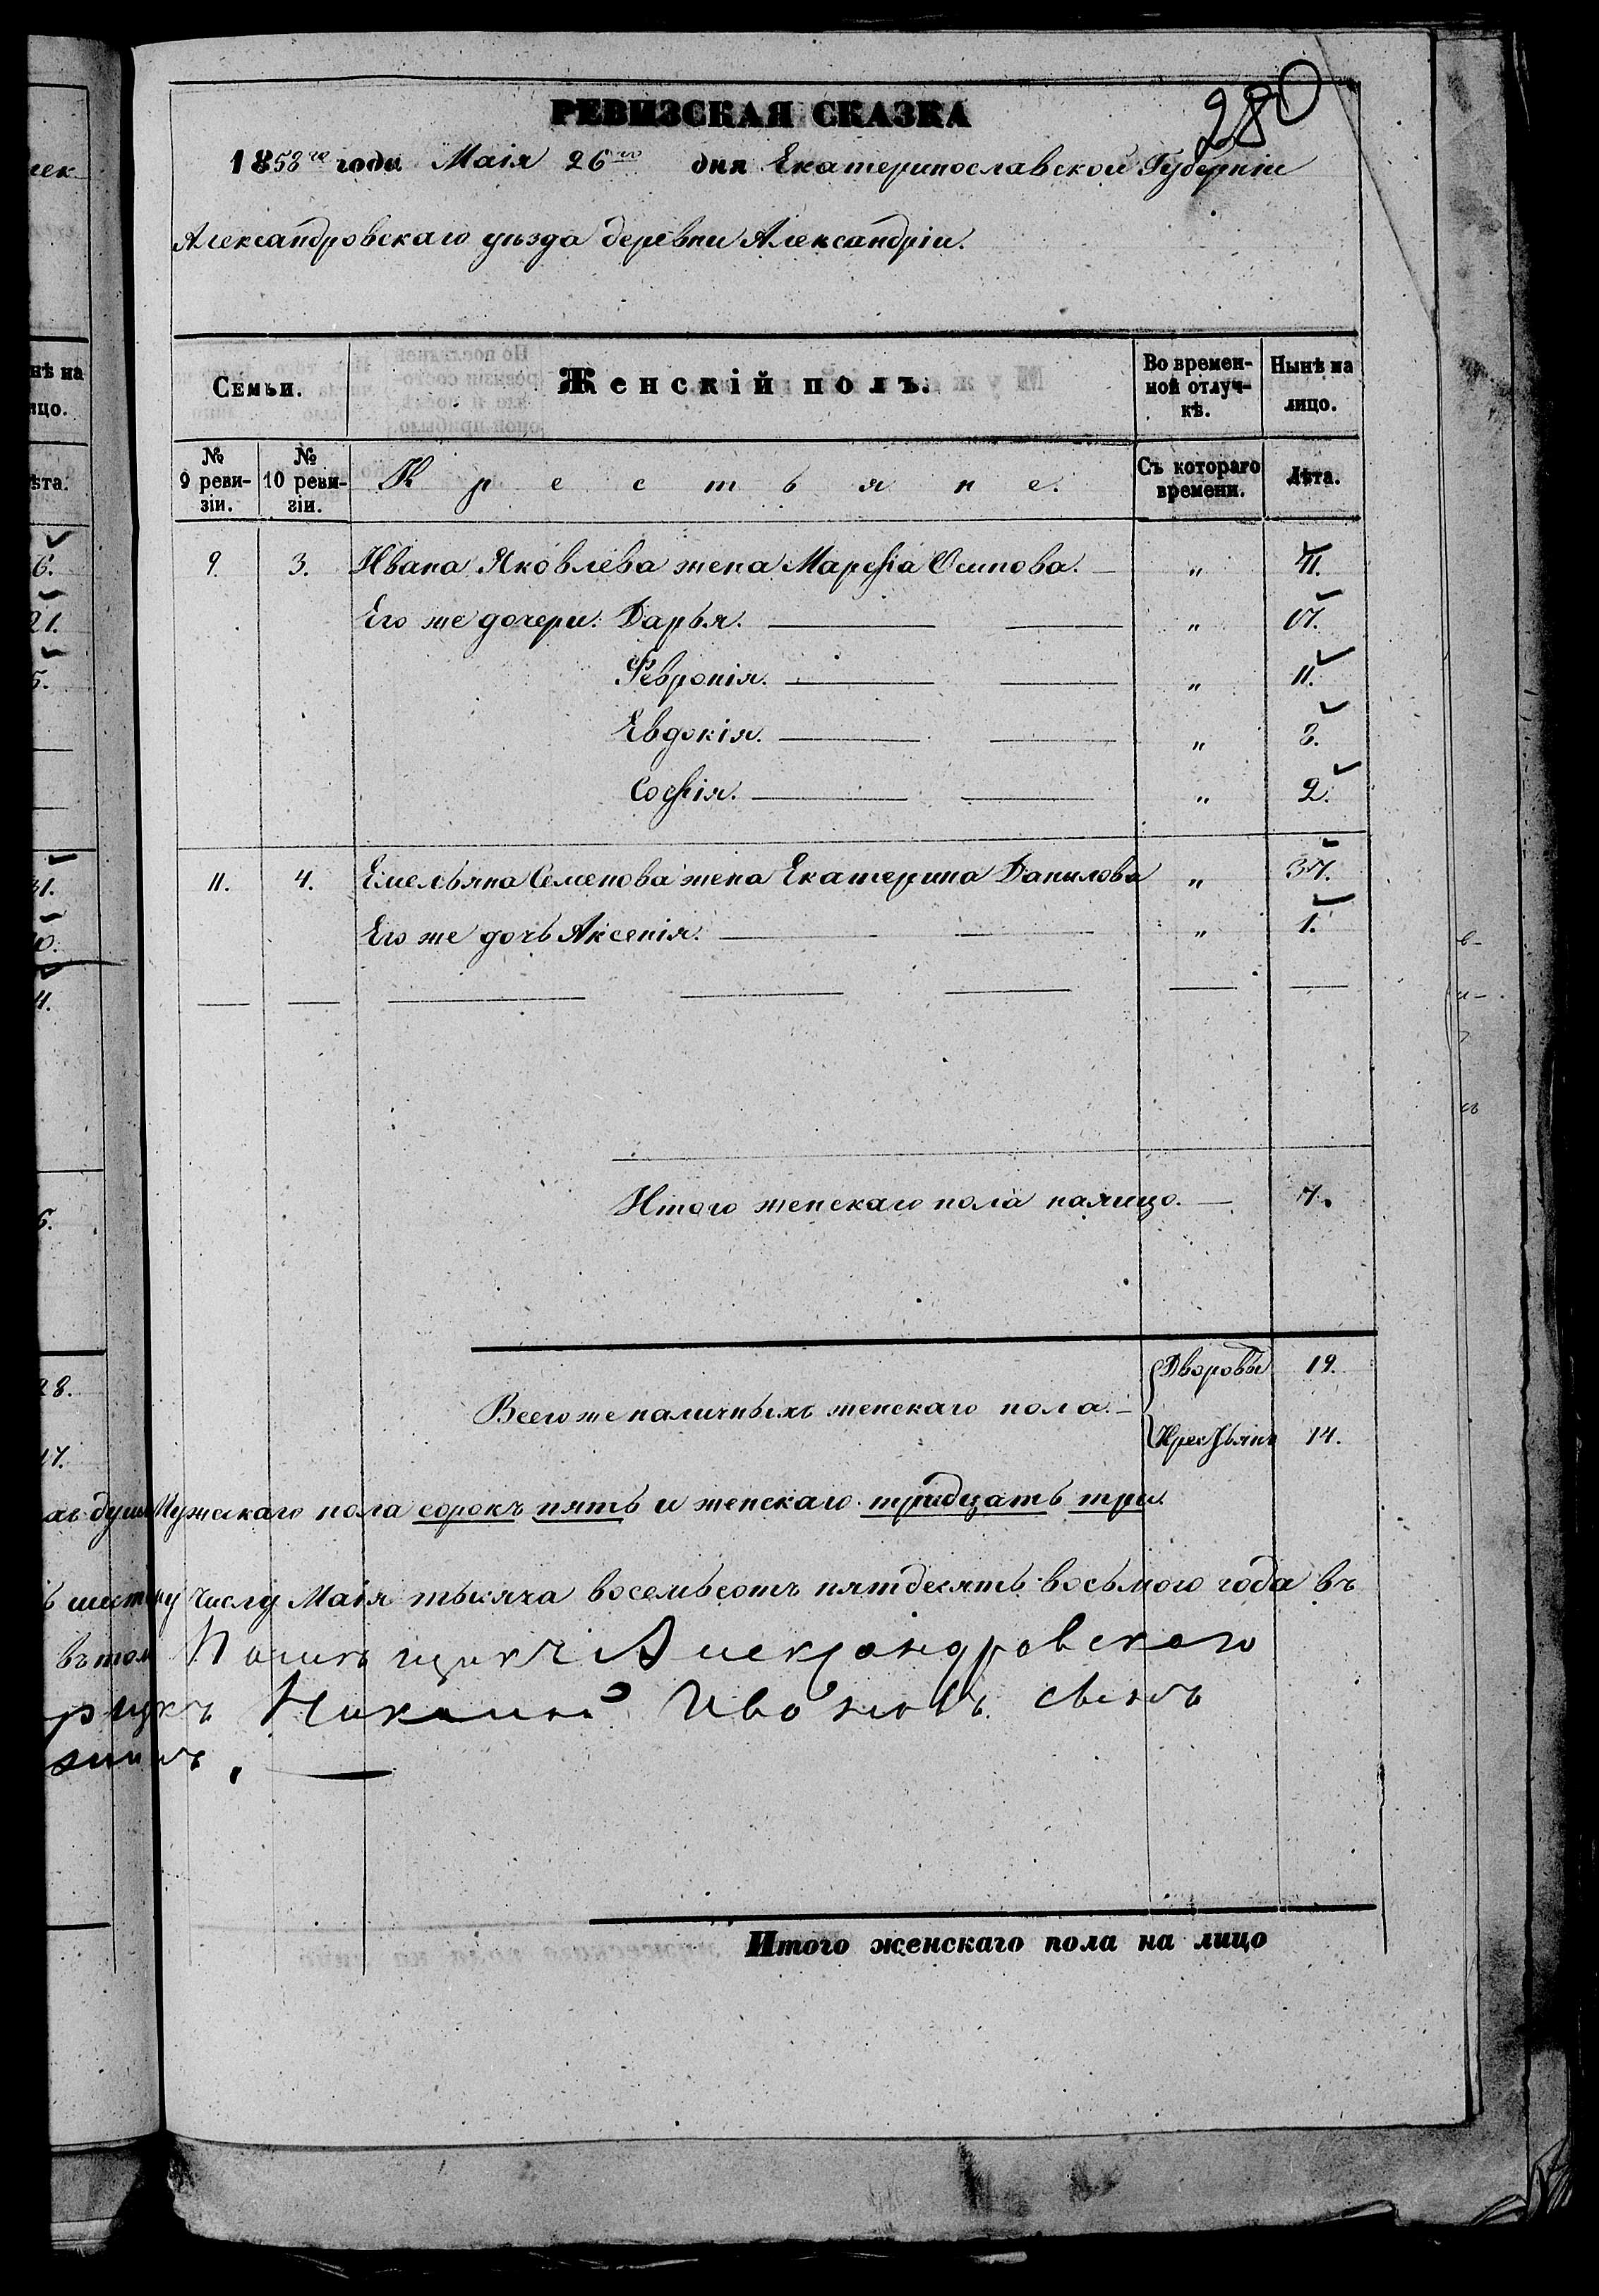 280
РЕВИЗСКАЯ СКАЗКА
1858го года Маія 26го дня Екатеринославской Губерніи
Александровскаго уѣзда деревни Александріи.
Семьи. Женскій полъ. Во времен-ной отлуч-кѣ. Нынѣ на лицо.
№ 9 реви-зіи. № 10 реви-зіи. Крестьяне. Съ котораго времени. Лѣта.
9. 3. Ивана Яковлева жена Марѳа Осипова. — " 41.
Его же дочери: Дарья. — — " 17.
Февронія. — — " 11.
Евдокія. — — " 8.
Софія. — — " 2.
11. 4. Емельяна Семенова жена Екатерина Данилова " 37.
Его же дочь Аксенія. — — " 1.
Итого женскаго пола налицо. — 7.
Всего же наличныхъ женскаго пола. — Дворовы 19.
Крестьянъ 14.
душъ Мужескаго пола сорокъ пять и женскаго тридцать три.
числу Маія тысяча восемьсотъ пятдесятъ восьмого года въ
въ том Помѣщикъ Александровскаго
Николай Ивановъ сынъ
Итого женскаго пола на лицо